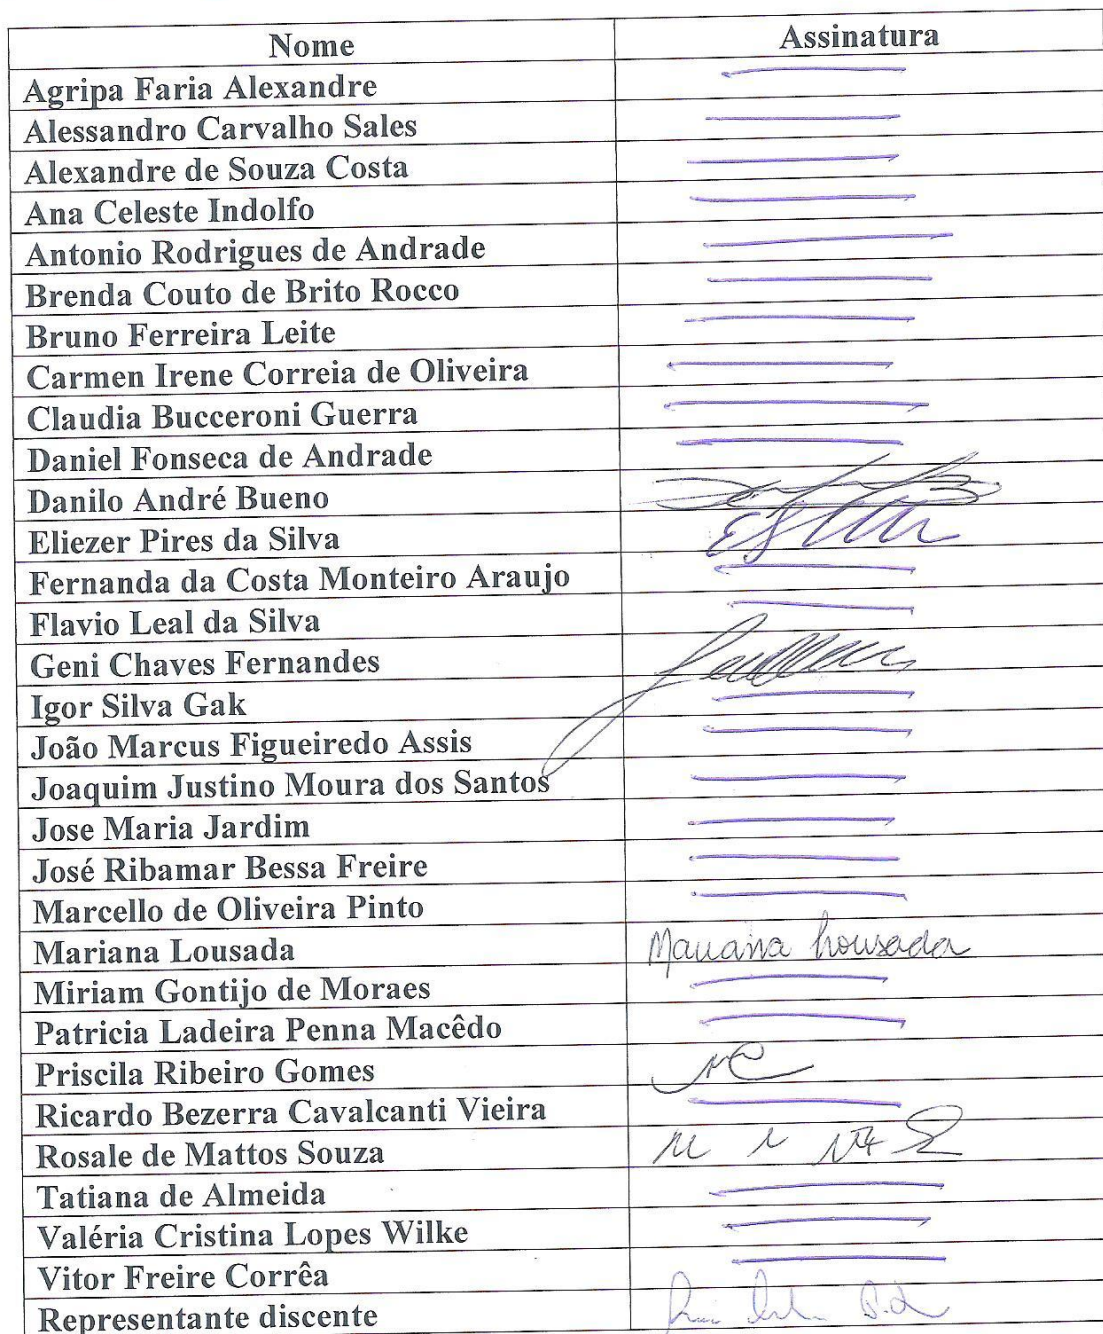 Nome Assinatura
Agripa Faria Alexandre
Alessandro Carvalho Sales
Alexandre de Souza Costa
Ana Celeste Indolfo
Antonio Rodrigues de Andrade
Brenda Couto de Brito Rocco
Bruno Ferreira Leite
Carmen Irene Correia de Oliveira
Claudia Bucceroni Guerra
Daniel Fonseca de Andrade
Danilo André Bueno
Eliezer Pires da Silva
Fernanda da Costa Monteiro Araujo
Flavio Leal da Silva
Geni Chaves Fernandes
Igor Silva Gak
João Marcus Figueiredo Assis
Joaquim Justino Moura dos Santos
Jose Maria Jardim
José Ribamar Bessa Freire
Marcello de Oliveira Pinto
Mariana Lousada Mariana Lousada
Miriam Gontijo de Moraes
Patricia Ladeira Penna Macêdo
Priscila Ribeiro Gomes
Ricardo Bezerra Cavalcanti Vieira
Rosale de Mattos Souza
Tatiana de Almeida
Valéria Cristina Lopes Wilke
Vitor Freire Corrêa
Representante discente